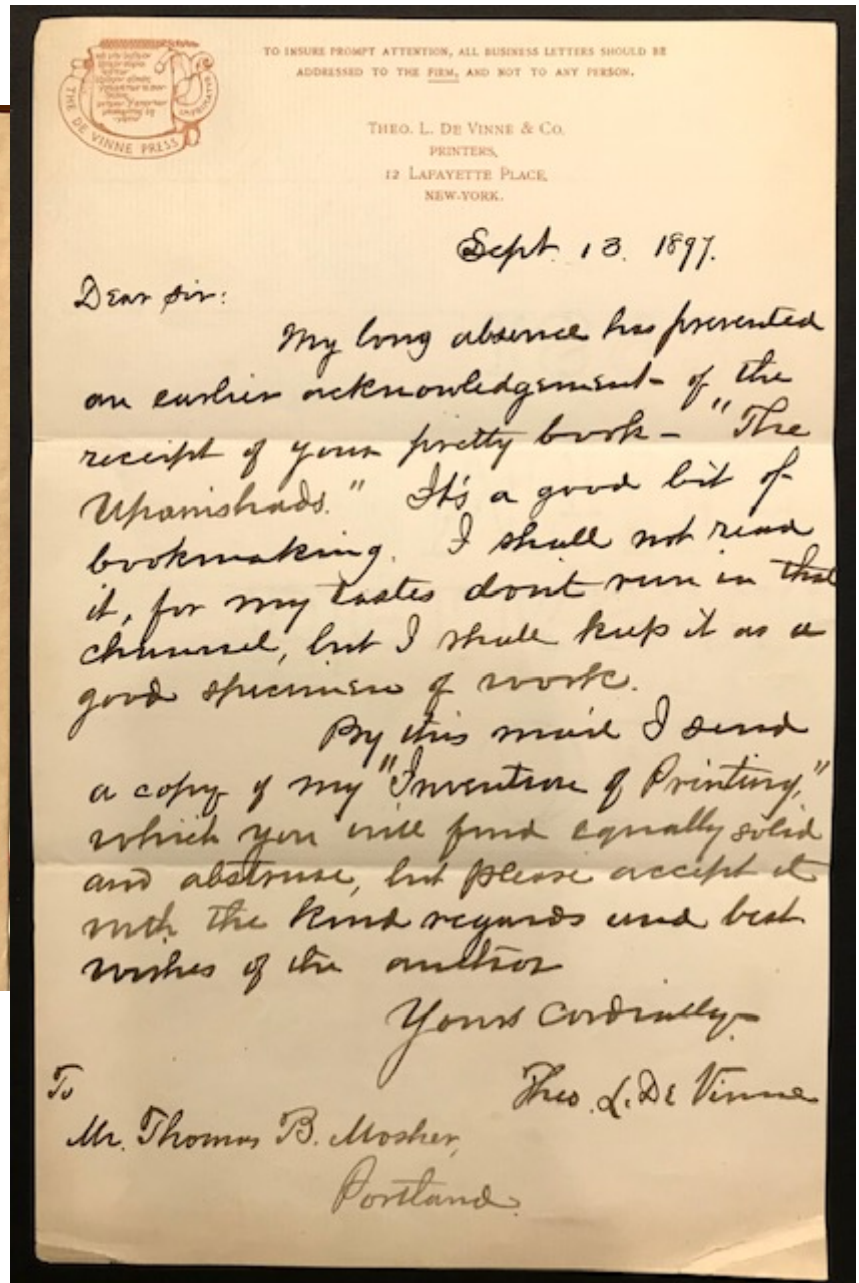 THE DE VINNE PRESS
TO INSURE PROMPT ATTENTION, ALL BUSINESS LETTERS SHOULD BE
ADDRESSED TO THE FIRM, AND NOT TO ANY PERSON.
THEO. L. DE VINNE & CO.
PRINTERS,
12 LAFAYETTE PLACE,
NEW-YORK.
Sept. 13. 1897.
Dear Sir:
My long absence has prevented
an earlier acknowledgement of the
receipt of your pretty book - "The
Upanishads." It's a good bit of
bookmaking. I shall not read
it, for my tastes don't run in that
channel, but I shall keep it as a
good specimen of work.
By this mail I send
a copy of my "Invention of Printing,"
which you will find equally solid
and abstruse, but please accept it
with the kind regards and best
wishes of the author
Yours Cordially
Theo. L. De Vinne
To
Mr. Thomas B. Mosher,
Portland.